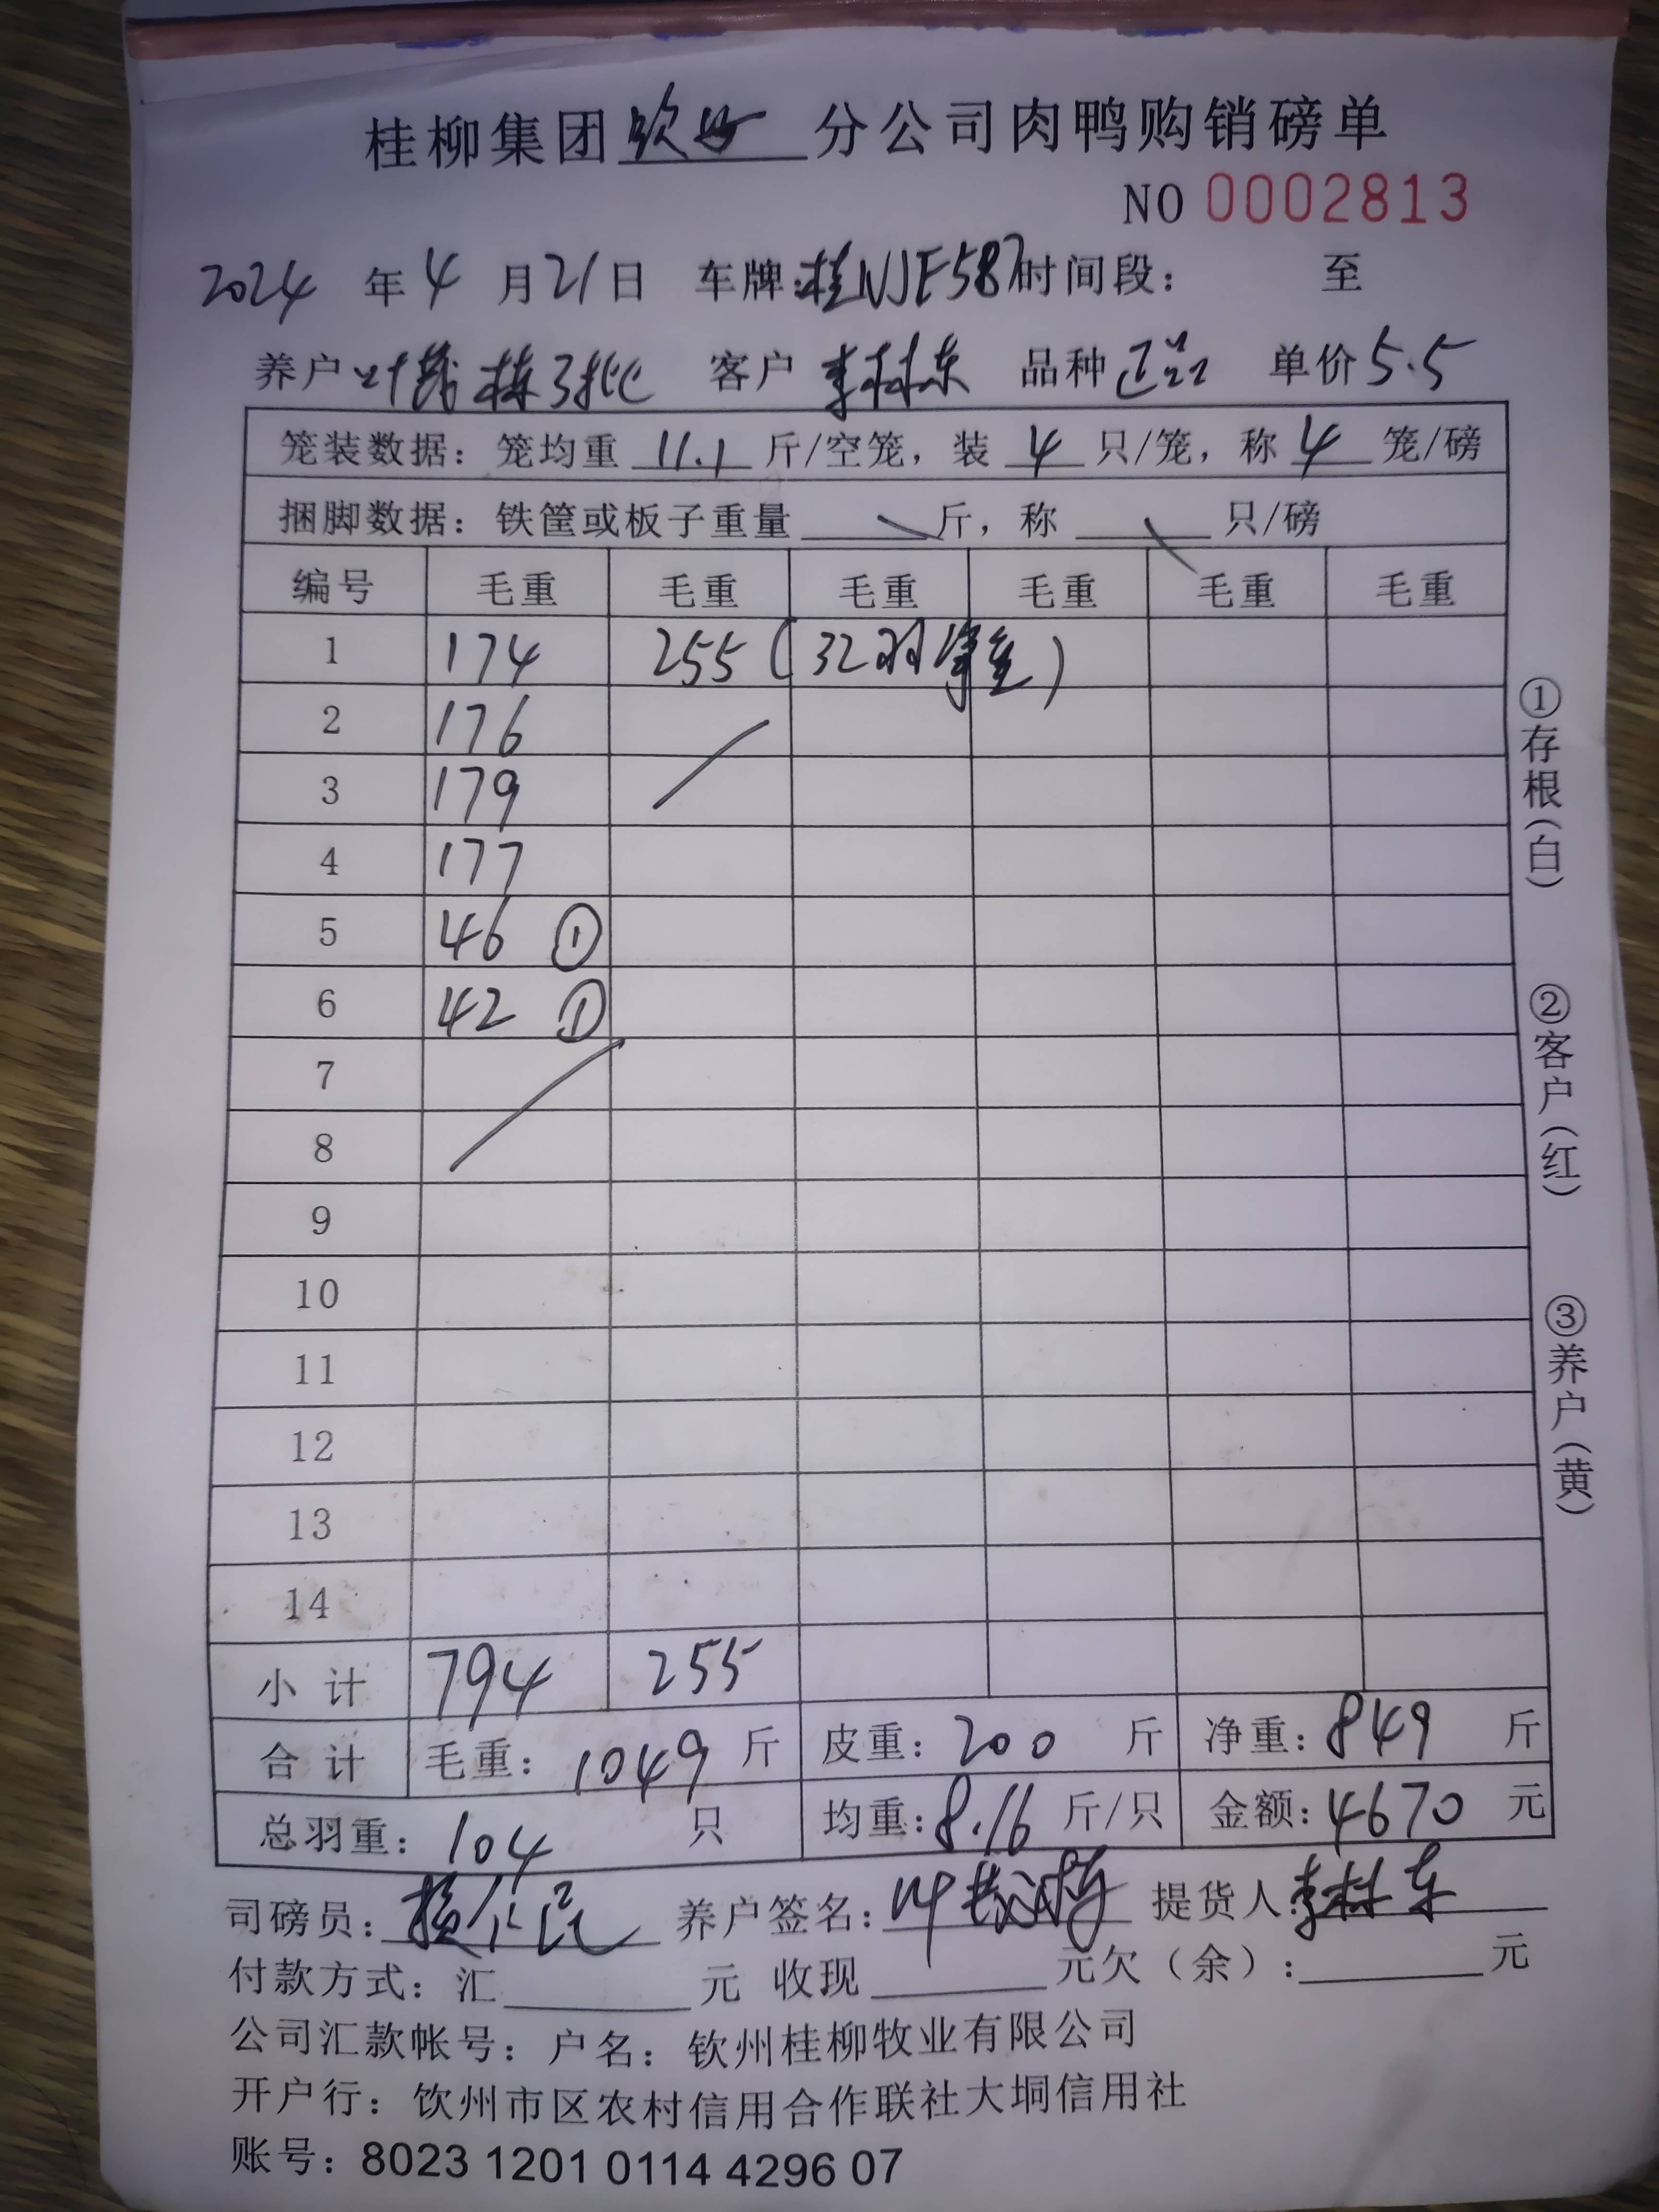 桂柳集团钦州分公司肉鸭购销磅单
NO 0002813
2024年4月21日 车牌:桂NJE587时间段: 至
养户叶茂栋3批 客户李林东 品种正品 单价5.5
笼装数据: 笼均重 11.1 斤/空笼, 装 4 只/笼, 称 4 笼/磅
捆脚数据: 铁筐或板子重量 斤, 称 只/磅
编号 毛重 毛重 毛重 毛重 毛重 毛重
1 174 255 (32羽净重)
2 176
3 179
4 177
5 46 ①
6 42 ①
7
8
9
10
11
12
13
14
小计 794 255
合计 毛重: 1049 斤 皮重: 200 斤 净重: 849 斤
总羽重: 104 只 均重: 8.16 斤/只 金额: 4670 元
司磅员: 养户签名: 叶茂栋 提货人李林东
付款方式: 汇 元 收现 元欠(余): 元
公司汇款帐号: 户名: 钦州桂柳牧业有限公司
开户行: 钦州市区农村信用合作联社大垌信用社
账号: 8023 1201 0114 4296 07
①存根(白)
②客户(红)
③养户(黄)